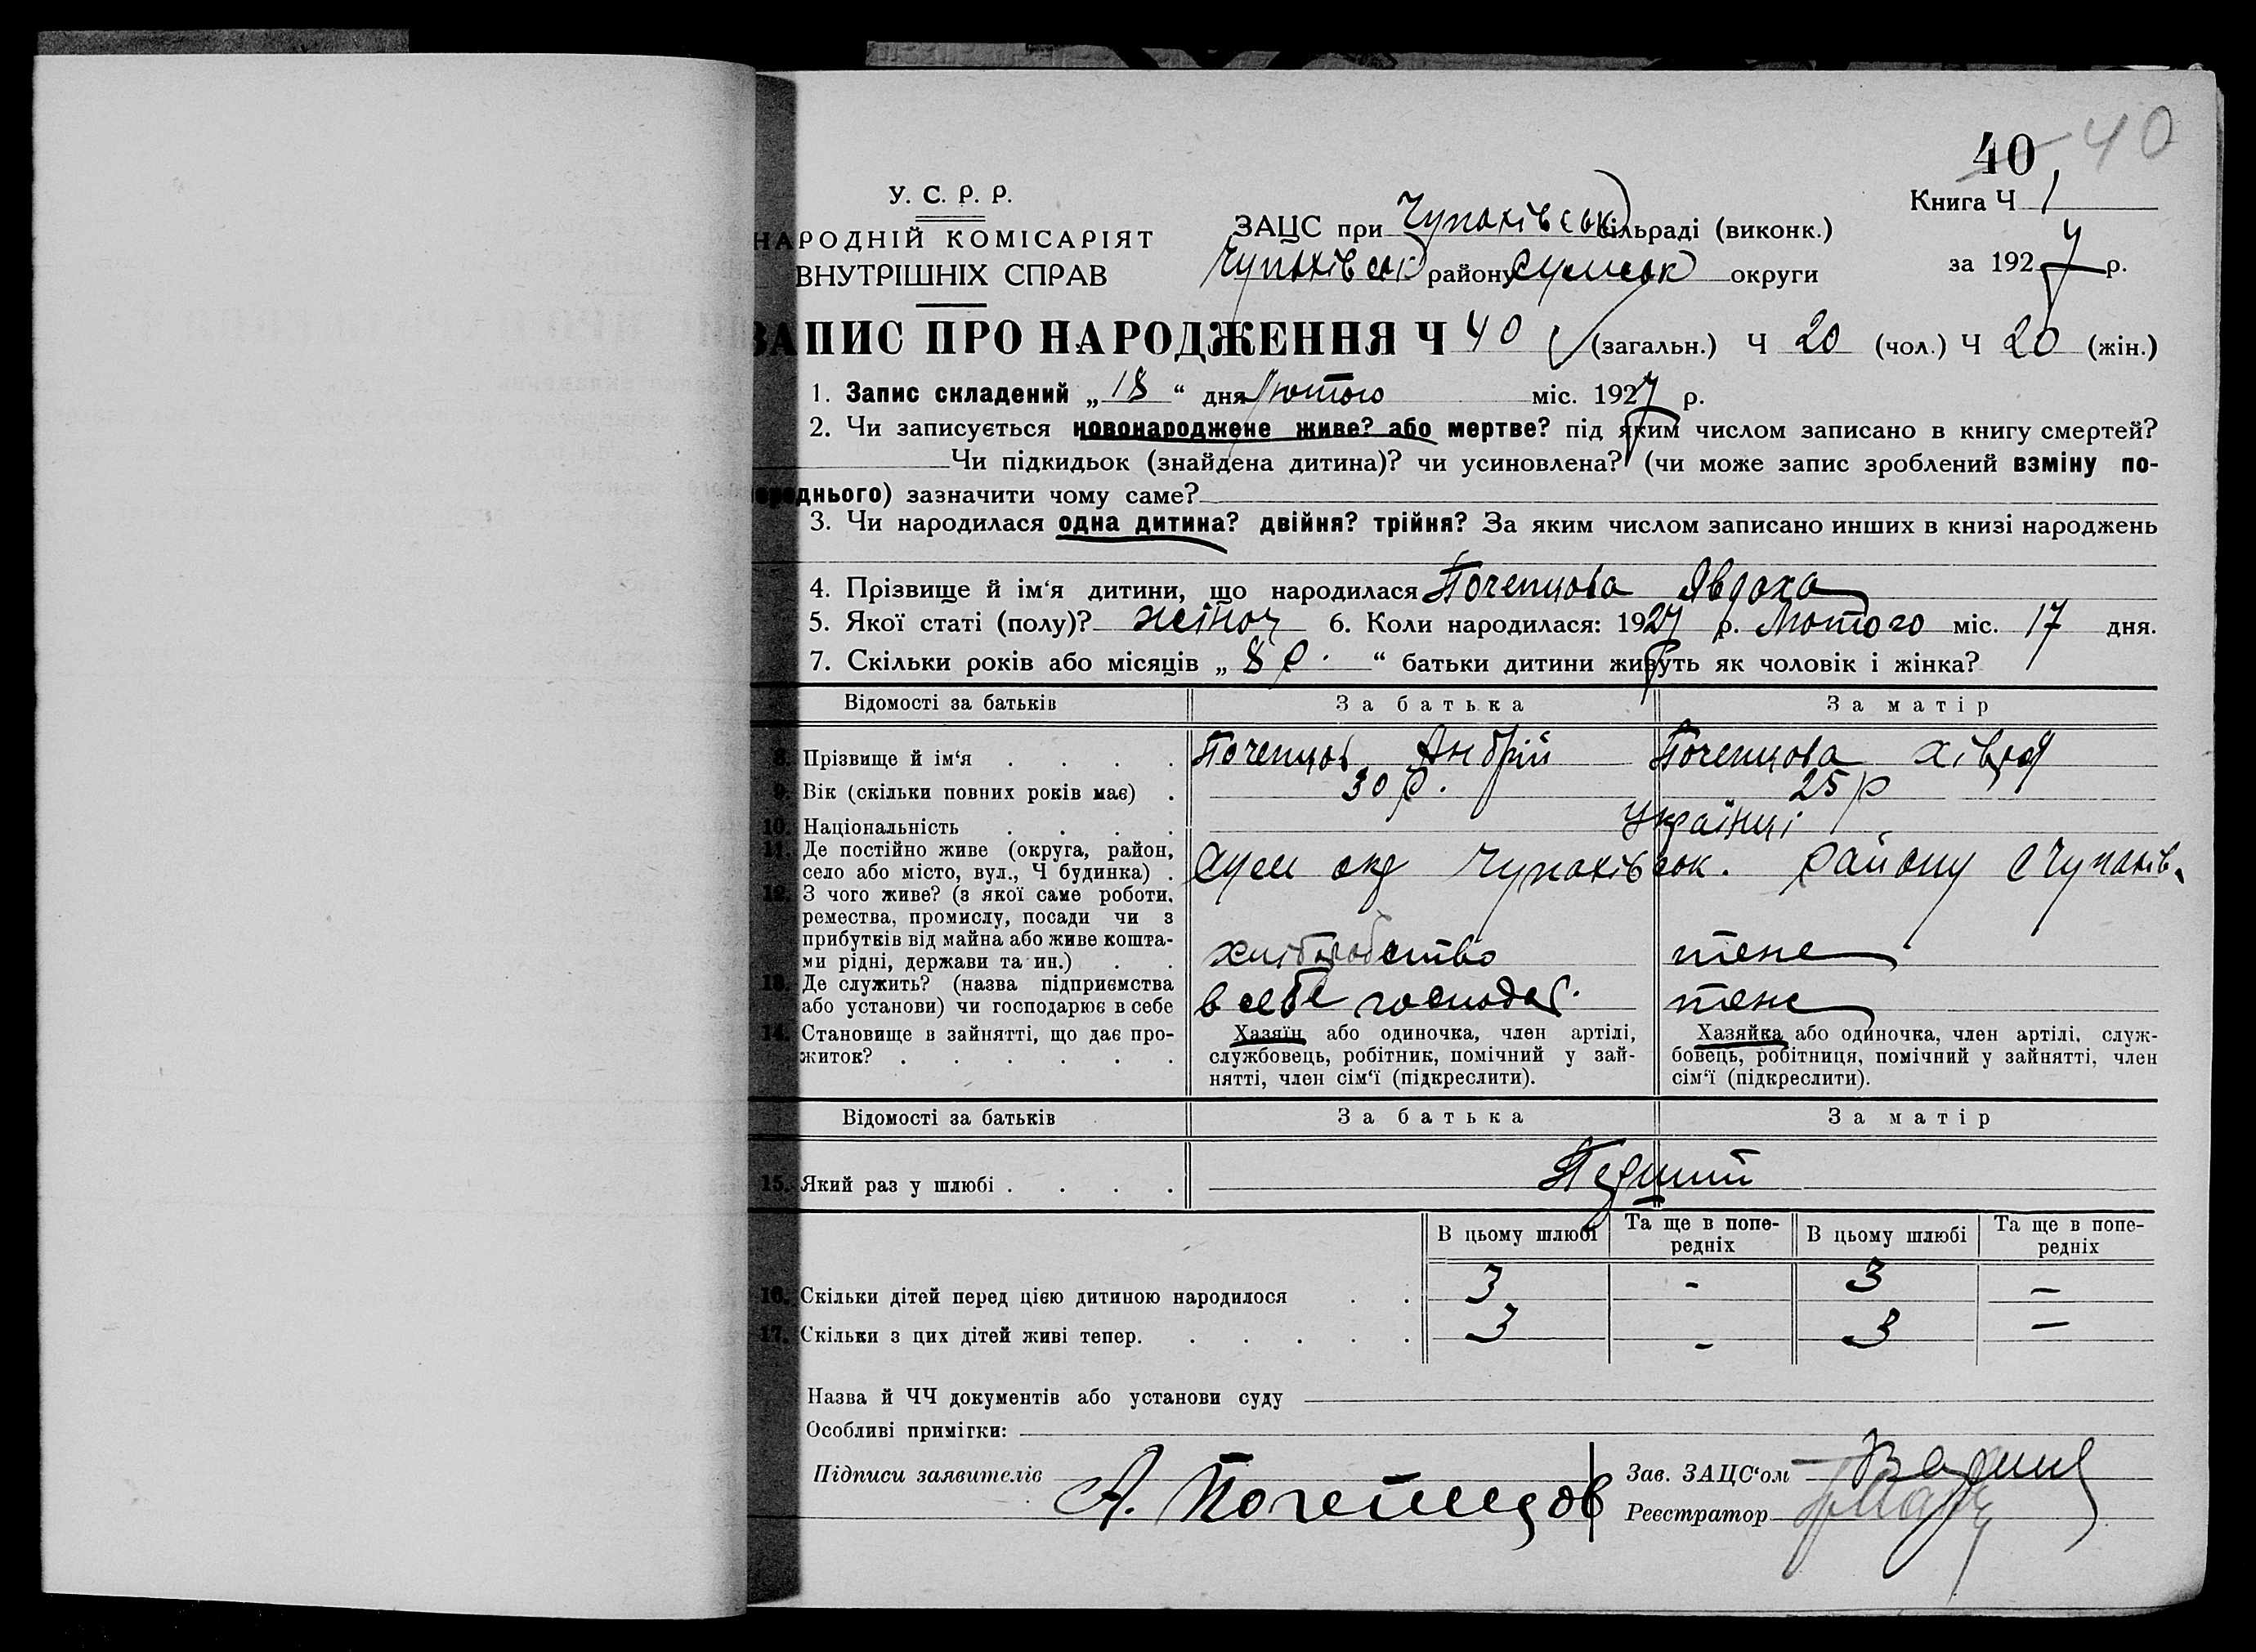 40 40
У. С. Р. Р.
НАРОДНІЙ КОМІСАРІЯТ
ВНУТРІШНІХ СПРАВ
Книга Ч 1
ЗАЦС при Чупахівськ сільраді (виконк.)
Чупахівськ району Сумськ округи
за 1927 р.
ЗАПИС ПРО НАРОДЖЕННЯ Ч 40 (загальн.) Ч 20 (чол.) Ч 20 (жін.)
1. Запис складений „ 18 “ дня лютого міс. 1927 р.
2. Чи записується новонароджене живе? або мертве? під яким числом записано в книгу смертей?
Чи підкидьок (знайдена дитина)? чи усиновлена? (чи може запис зроблений взміну по-
переднього) зазначити чому саме?
3. Чи народилася одна дитина? двійня? трійня? За яким числом записано инших в книзі народжень
4. Прізвище й ім‘я дитини, що народилася Почепцова Явдоха
5. Якої статі (полу)? жіноч 6. Коли народилася: 1927 р. Лютого міс. 17 дня.
7. Скільки років або місяців „ 8 р. “ батьки дитини живуть як чоловік і жінка?
Відомості за батьків За батька За матір
8. Прізвище й ім‘я . . . . Почепцов Андрій Почепцова Хівря
9. Вік (скільки повних років має) . 30 р. 25 р
10. Національність . . . . Українці
11. Де постійно живе (округа, район,
село або місто, вул., Ч будинка) . Сум окр Чупахівськ. району с Чупахів.
12. З чого живе? (з якої саме роботи,
ремества, промислу, посади чи з
прибутків від майна або живе кошта-
ми рідні, держави та ин.) . . хліборобство теже
13. Де служить? (назва підприємства
або установи) чи господарює в себе в себе господар. теже
14. Становище в зайнятті, що дає про-
житок? . . . . . .
Хазяїн або одиночка, член артілі,
службовець, робітник, помічний у зай-
нятті, член сім‘ї (підкреслити).
Хазяйка або одиночка, член артілі, служ-
бовець, робітниця, помічний у зайнятті, член
сім‘ї (підкреслити).
Відомості за батьків За батька За матір
15. Який раз у шлюбі . . . . Перший
В цьому шлюбі Та ще в попе-
редніх В цьому шлюбі Та ще в попе-
редніх
16. Скільки дітей перед цією дитиною народилося . . 3 - 3 —
17. Скільки з цих дітей живі тепер. . . . . . 3 - 3 —
Назва й ЧЧ документів або установи суду
Особливі примігки:
Підписи заявителів А. Почепцов
Зав. ЗАЦС‘ом
Реєстратор